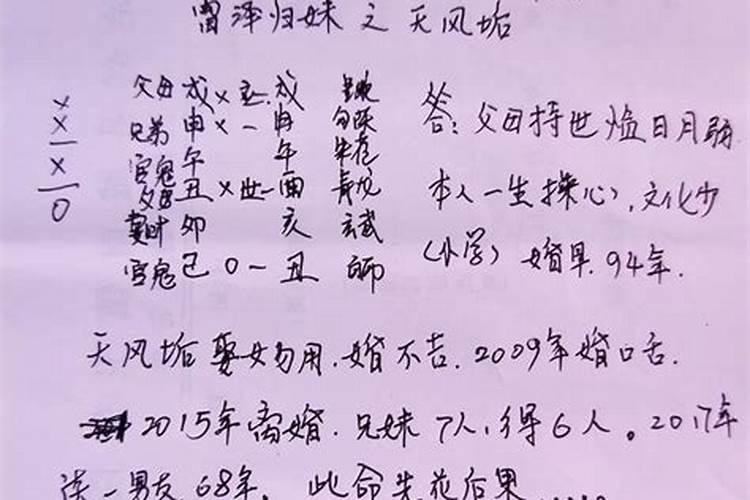 雷泽归妹之天风垢
父母 戌 x 应 戌
兄弟 申 x 一 申 勾陈
官鬼 午 午 朱雀
父母 丑 x 世 一 酉 青龙
妻财 卯 亥 玄武
官鬼 巳 0 一 丑
x
x
一
x
一
0
答: 父母持世临日月
本人一生操心, 文化少
(小学) 婚早. 94年.
天风垢 娶女勿用. 婚不吉. 2009年婚口舌.
2015年离婚. 兄妹7人, 得6人。2017年
一男友 68年, 此命先花后果